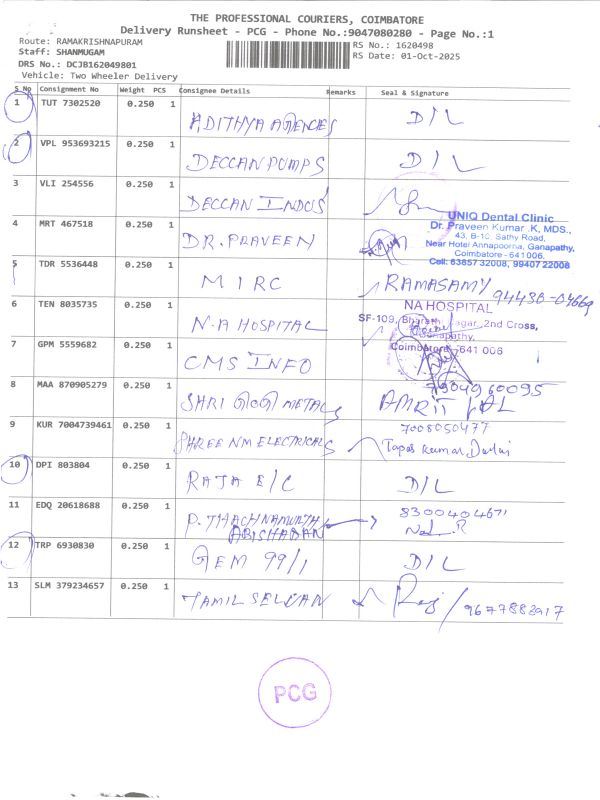 THE PROFESSIONAL COURIERS, COIMBATORE
Delivery Runsheet - PCG - Phone No.:9047080280 - Page No.:1
Route: RAMAKRISHNAPURAM
RS No.: 1620498
Staff: SHANMUGAM
RS Date: 01-Oct-2025
DRS No.: DCJB162049801
Vehicle: Two Wheeler Delivery
S No Consignment No Weight PCS Consignee Details Remarks Seal & Signature
1 TUT 7302520 0.250 1 ADITHYA AGENCES D/L
2 VPL 953693215 0.250 1 DECCAN PUMPS D/L
3 VLI 254556 0.250 1 DECCAN INDUS
UNIQ Dental Clinic
Dr. Praveen Kumar .K, MDS.,
43, B-10, Sathy Road,
Near Hotel Annapoorna, Ganapathy,
Coimbatore - 641006.
Cell: 63857 32008, 99407 22008
4 MRT 467518 0.250 1 DR. PRAVEEN
5 TDR 5536448 0.250 1 MIRC RAMASAMY
6 TEN 8035735 0.250 1 N.A HOSPITAL
NA HOSPITAL
SF-109, Bharathi Nagar, 2nd Cross,
Ganapathy,
Coimbatore - 641 006
7 GPM 5559682 0.250 1 CMS INFO
7904960095
8 MAA 870905279 0.250 1 SHRI METALS AMRIT LAL
9 KUR 7004739461 0.250 1 SHREE NM ELECTRICALS 7008050477
Tapas Kumar
10 DPI 803804 0.250 1 RAJA E/C D/L
11 EDQ 20618688 0.250 1 8300404671
12 TRP 6930830 0.250 1 GEM 99/1 D/L
13 SLM 379234657 0.250 1 TAMIL SELVAN 9677883917
PCG